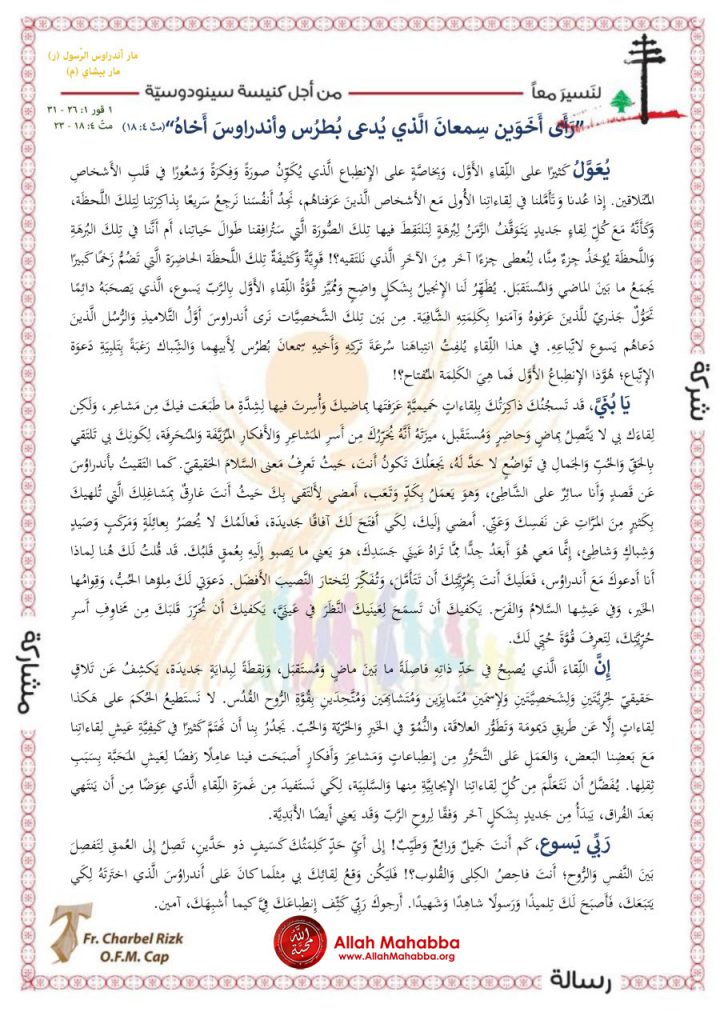 مار أندراوس الرّسول (ر)
مار بيشاي (م)
لنَسيرَ معاً
من أجل كنيسة سينودوسيّة
١ قور ١: ٢٦ - ٣١
متّ ٤: ١٨ - ٢٣
”رَأَى أَخَوَين سِمعانَ الَّذي يُدعى بُطرُس وأندراوسَ أَخاهُ“ (متّ ٤: ١٨)
يُعَوَّلُ كَثيرًا على اللِّقاءِ الأوَّل، وَبِخاصَّةٍ على الإنطِباعِ الَّذي يُكَوِّنُ صورَةً وَفِكرَةً وَشُعُورًا في قَلبِ الأشخاصِ
المُتَلاقين. إذا عُدنا وَتَأَمَّلنا في لِقاءاتِنا الأُولى مَع الأشخاصِ الَّذينَ عَرَفناهُم، نَجِدُ أنفُسَنا نَرجِعُ سَريعًا بِذاكِرَتِنا لِتِلكَ اللَّحظَة،
وَكَأنَّهُ مَعَ كُلِّ لِقاءٍ جديدٍ يَتَوَقَّفُ الزَّمَنُ لِبُرهَةٍ لِنَلتَقِطَ فيها تِلكَ الصُّورَةَ الَّتي سَتُرافِقنا طَوالَ حَياتِنا، أم أنَّنا في تِلكَ البُرهَةِ
وَاللَّحظَة يُؤخَذُ جِزءٌ مِنَّا، لِنُعطى جِزءًا آخر مِنَ الآخَرِ الَّذي نَلتَقيه؟! قَوِيَّةٌ وَكَثيفَةٌ تِلكَ اللَّحظَة الحاضِرَة الَّتي تَضُمُّ زَخمًا كَبيرًا
يَجمَعُ ما بَينَ الماضي والمُستَقبَل. يُظَهِّرُ لَنا الإنجيلُ بِشَكلٍ واضِحٍ وَمُمَيَّزٍ قُوَّةُ اللِّقاءِ الأوَّل بِالرَّبّ يَسوع، الَّذي يَصحَبَهُ دائِمًا
تَحَوُّلٌ جَذريّ للَّذينَ عَرَفوهُ وَآمَنوا بِكَلِمَتِهِ الشَّافِيَة. مِن بَين تِلكَ الشَّخصِيَّات نَرى أندراوسَ أوَّلُ التَّلاميذِ وَالرُّسُل الَّذينَ
دَعاهُم يَسوع لاتِّباعِهِ. في هذا اللِّقاءِ يُلفِتُ انتِباهَنا سُرعَةَ تَركِهِ وَأخيهِ سِمعانَ بُطرُس لِأبيهِما وَالشِّباك رَغبَةً بِتَلبِيَةِ دَعوَةِ
الإتِّباع؛ هُوَّذا الإنطِباعُ الأوَّل فَما هِيَ الكَلِمَة المُفتاح؟!
يَا بُنَيَّ، قَد تَسجُنُكَ ذاكِرَتُكَ بِلِقاءاتٍ حَميمِيَّةٍ عَرَفتَها بِماضيكَ وَأُسِرتَ فيها لِشِدَّةِ ما طَبَعَت فيكَ مِن مَشاعِر، وَلَكِن
لِقاءَكَ بي لا يَتَّصِلُ بِماضٍ وَحاضِرٍ وَمُستَقبل، ميزَتَهُ أنَّهُ يُحَرِّرُكَ مِن أسرِ المَشاعِرِ وَالأفكارِ المُزَيَّفَة وَالمُنحَرِفَة، لِكَونِكَ بي تَلتَقي
بِالحَقِّ وَالحُبّ وَالجَمال في تَواضُعٍ لا حَدَّ لَهُ، يَجعَلُكَ تَكونُ أنتَ، حَيثُ تَعرِفُ مَعنى السَّلامَ الحَقيقيّ. كَما التَقيتُ بِأندراوُسَ
عَن قَصدٍ وَأنا سائِرٌ على الشَّاطِئ، وَهوَ يَعمَلُ بِكَدٍّ وَتَعَب، أمضي لِألتَقي بِكَ حَيثُ أنتَ غارِقٌ بِمَشاغِلِكَ الَّتي تُلهيكَ
بِكَثيرٍ مِنَ المَرَّاتِ عَن نَفسِكَ وَعَنّي. أمضي إلَيكَ، لِكَي أفتَحَ لَكَ آفاقًا جَديدَة، فَعالَمُكَ لا يُحصَرُ بِعائِلَةٍ وَمَركَبٍ وَصَيدٍ
وَشِباكٍ وَشاطِئ، إنَّما مَعي هُوَ أبعَدُ جِدًّا مِمَّا تَراهُ عَينَي جَسَدِكَ، هوَ يَعني ما يَصبو إلَيهِ بِعُمقٍ قَلبُكَ. قَد قُلتُ لَكَ هُنا لِماذا
أنا أدعوكَ مَعَ أندراوُس، فَعَلَيكَ أنتَ بِحُرِّيَّتِكَ أن تَتَأمَّلَ، وَتُفَكِّرَ لِتَختارَ النَّصيبَ الأفضَل. دَعوَتي لَكَ مِلؤها الحُبُّ، وَقِوامُها
الخَير، وَفي عَيشِها السَّلامُ وَالفَرَح. يَكفيكَ أن تَسمَحَ لِعَينَيكَ النَّظَرَ في عَينَيَّ، يَكفيكَ أن تُحَرِّرَ قَلبَكَ مِن مَخاوِفِ أسرِ
حُرِّيَّتِكَ، لِتَعرِفَ قُوَّةَ حُبّي لَكَ.
إنَّ اللِّقاءَ الَّذي يُصبِحُ في حَدّ ذاتِهِ فاصِلَةً ما بَينَ ماضٍ وَمُستَقبَل، وَنِقطَةً لِبِدايَةٍ جَديدَة، يَكشِفُ عَن تَلاقٍ
حَقيقيّ لِحُرِّيَّتَينِ وَلِشَخصِيَّتَين وَلِإسمَينِ مُتَمايِزَينِ وَمُتَشابِهَينِ وَمُتَّحِدَينِ بِقُوَّةِ الرُّوحِ القُدُس. لا نَستَطيعُ الحُكمَ على هَكَذا
لِقاءاتٍ إلَّا عَن طَريقِ دَيمومَة وَتَطَوُّر العلاقَة، والنُّمُوّ في الخَيرِ وَالحُرِّيَّة وَالحُبّ. يَجدُرُ بِنا أن نَهتَمَّ كَثيرًا في كَيفِيَّةِ عَيشِ لِقاءاتِنا
مَعَ بَعضِنا البَعض، وَالعَمَل على التَّحَرُّرِ مِن إنطِباعاتٍ وَمَشاعِرَ وَأفكارٍ أصبَحَت فينا عامِلًا رَفضًا لِعَيشِ المَحَبَّة بِسَبَبِ
ثِقلِها. يُفَضَّلُ أن نَتَعَلَّمَ مِن كُلِّ لِقاءاتِنا الإيجابِيَّةِ مِنها وَالسَّلبِيَّة، لِكَي نَستَفيدَ مِن غَمرَةِ اللِّقاءِ الَّذي عِوَضًا مِن أن يَنتَهي
بَعدَ الفُراق، يَبدَأُ مِن جَديدٍ بِشَكلٍ آخر وَفقًا لِروحِ الرَّبّ وَقَد يَعني أيضًا الأبَدِيَّة.
رَبِّي يَسوع، كَم أنتَ جَميلٌ وَرائِعٌ وَطَيِّبٌ! إلى أيِّ حَدٍّ كَلِمَتُكَ كَسَيفٍ ذو حَدَّين، تَصِلُ إلى العُمقِ لِتَفصِلَ
بَينَ النَّفسِ وَالرُّوح؛ أنتَ فاحِصُ الكِلى وَالقُلوب؟! فَليَكُن وَقعُ لِقائِكَ بي مِثلَما كانَ على أندراوُسَ الَّذي اختَرتَهُ لِكَي
يَتبَعَكَ، فَأصبَحَ لَكَ تِلميذًا وَرَسولًا شاهِدًا وَشَهيدًا. أرجوكَ رَبِّي كَثِّف إنطِباعَكَ فِيَّ كَيما أُشبِهَكَ، آمين.
شركة
مشاركة
رسالة
Fr. Charbel Rizk
O.F.M. Cap
الله محبّة
Allah Mahabba
www.AllahMahabba.org